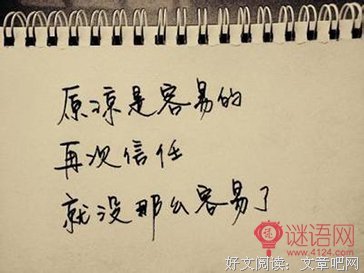 原谅是容易的
再次信任
就没那么容易了
谜语网
www.4124.com
好文阅读：文章吧网